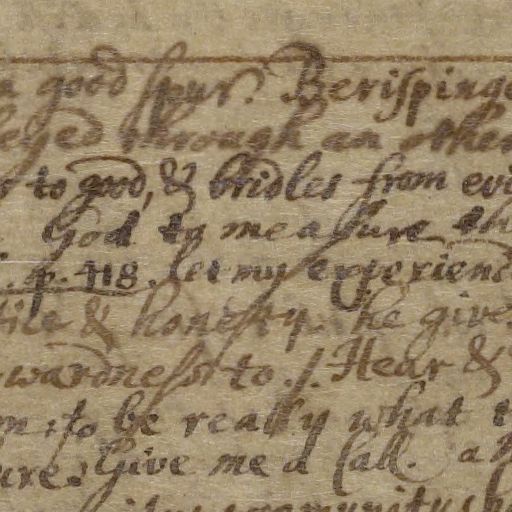 a good spur. Berispinge
leged through an other
to good, & bridles from evi
God to measure th
p. 418. let my experienc
tice & honesty. he give
wardness to ./ Hear &
m; to be really what t
ure. Give me a Call. a